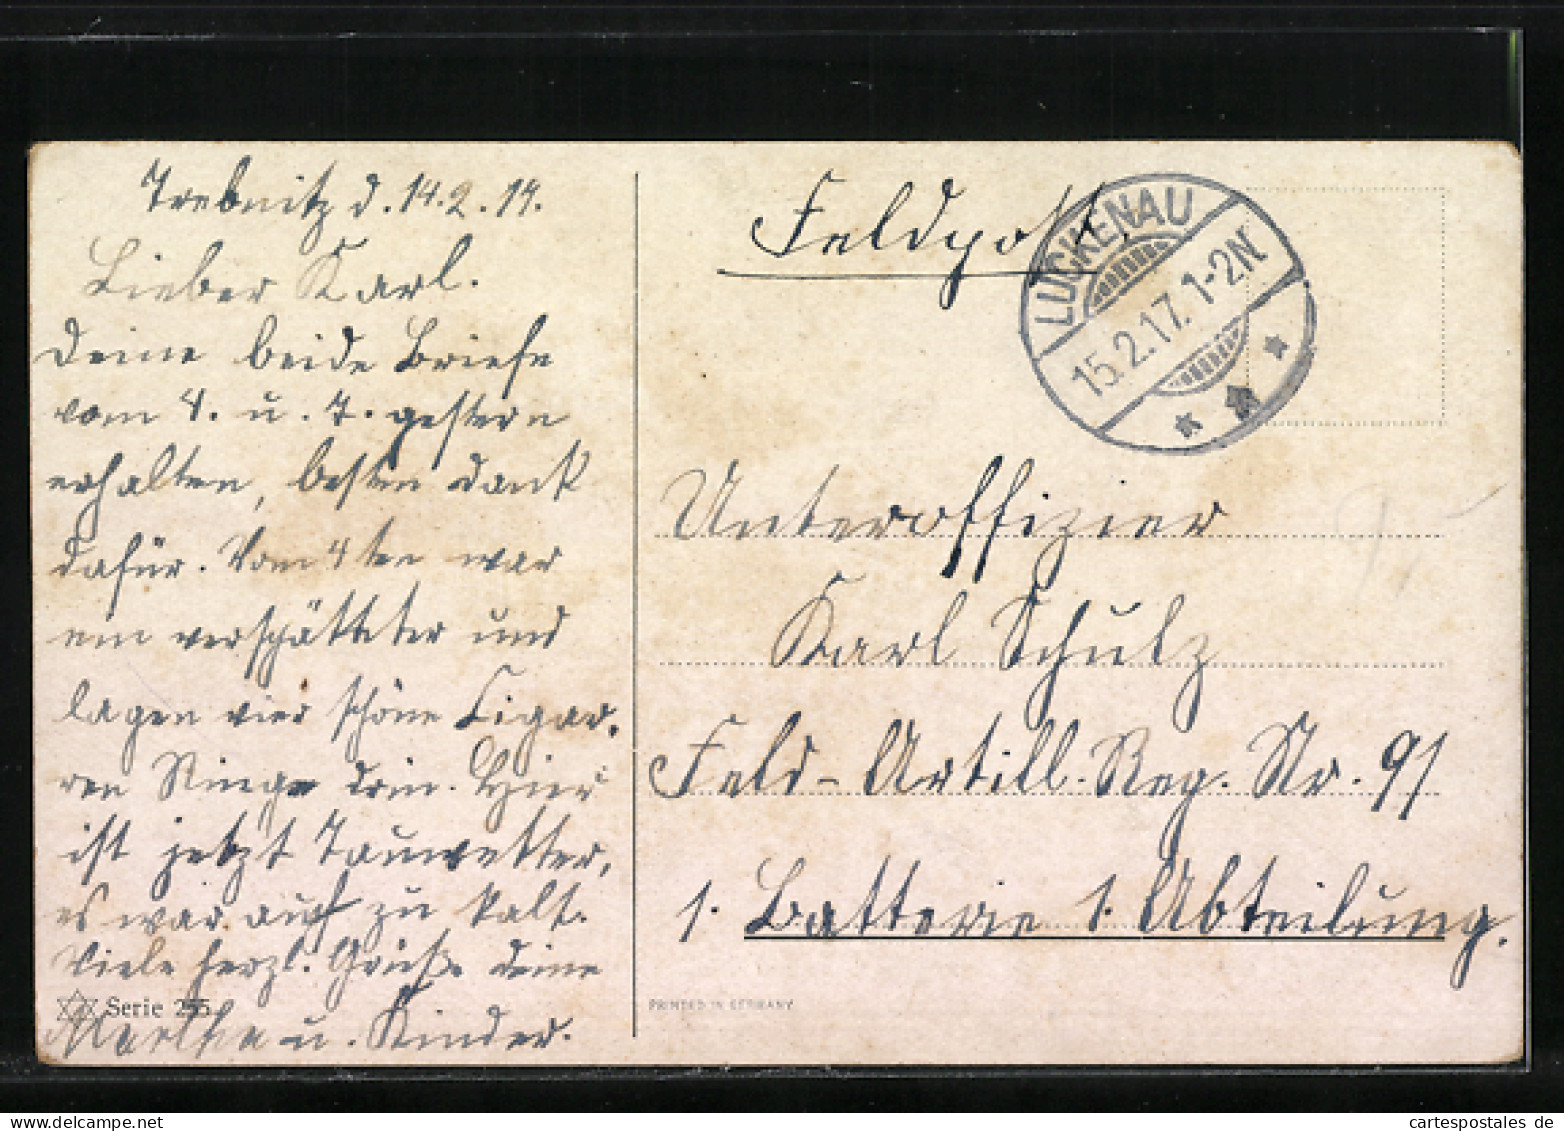 Trebnitz d. 14.2.17.
Lieber Karl.
Deine beide Briefe
vom 4. u. 7. gestern
erhalten, besten Dank
dafür. Vom 4ten war
ein verspätteter und
lagen vier schöne Cigar-
ren Ringe drin. Hier
ist jetzt Tauwetter,
es war auch zu kalt.
Viele herzl. Grüße deine
Marthe u. Kinder.
Serie 255
Feldpost.
LUCKENAU
15.2.17. 1-2N.
Unteroffizier
Karl Schulz
Feld-Artill. Reg. Nr. 91
1. Batterie 1. Abteilung.
PRINTED IN GERMANY
cartespostales de